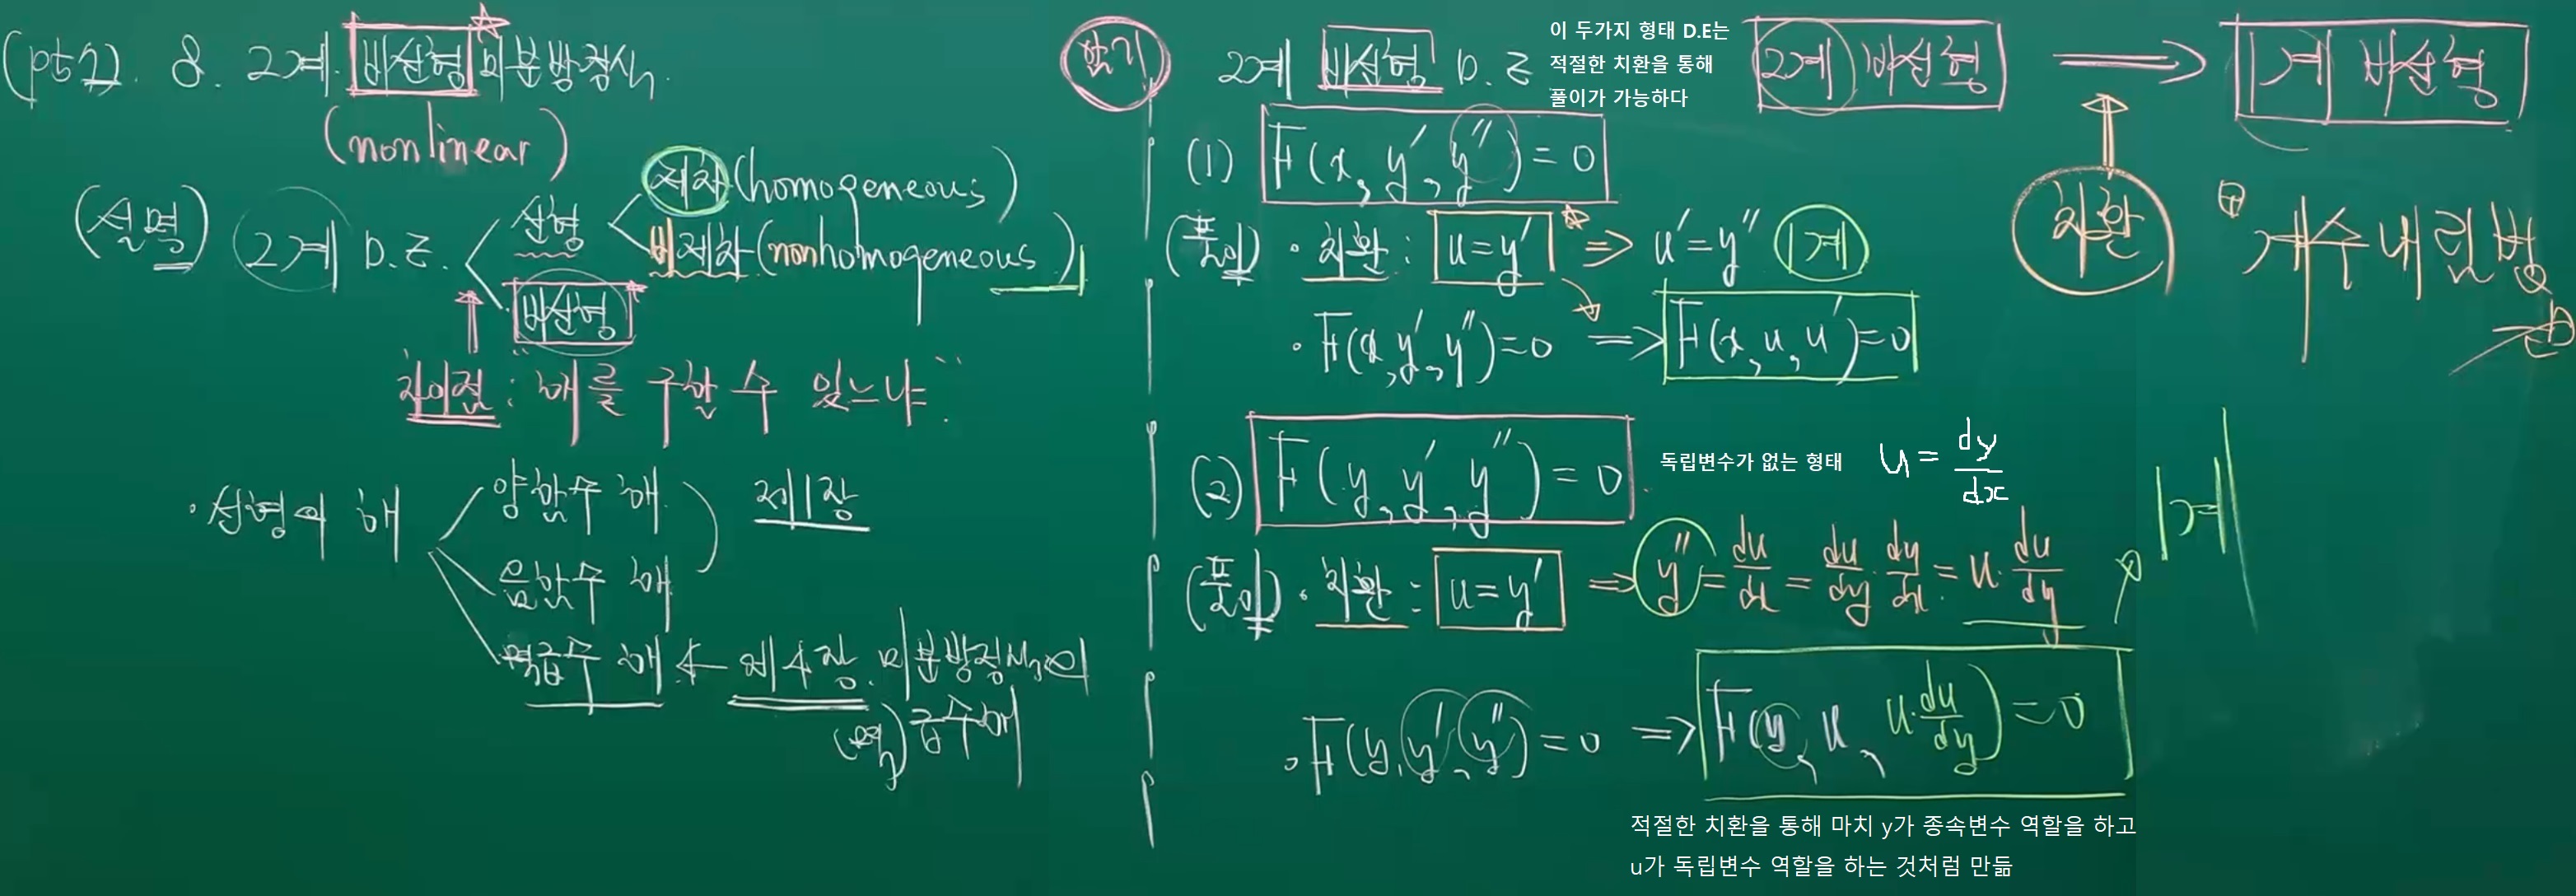 (pt2). 8. 2계 비선형 미분방정식.
(nonlinear)
(설명) 2계 D.E.
선형
제차(homogeneous)
비제차(nonhomogeneous)
비선형
차이점 : "해를 구할 수 있느냐"
· 선형의 해
양함수 해
음함수 해
제1장
멱급수 해 ← 제4장. 미분방정식의
(멱)급수해
암기
2계 비선형 D.E
이 두가지 형태 D.E는
적절한 치환을 통해
풀이가 가능하다
2계 비선형 ⇒ 1계 비선형
치환
계수내림법
(1) F(x, y′, y″) = 0
(풀이) · 치환 : u = y′ ⇒ u′ = y″ 1계
· F(x, y′, y″) = 0 ⇒ F(x, u, u′) = 0
(2) F(y, y′, y″) = 0
독립변수가 없는 형태
u = dy/dx
(풀이) · 치환 : u = y′ ⇒ y″ = du/dx = du/dy · dy/dx = u · du/dy
1계
· F(y, y′, y″) = 0 ⇒ F(y, u, u · du/dy) = 0
적절한 치환을 통해 마치 y가 종속변수 역할을 하고
u가 독립변수 역할을 하는 것처럼 만듦